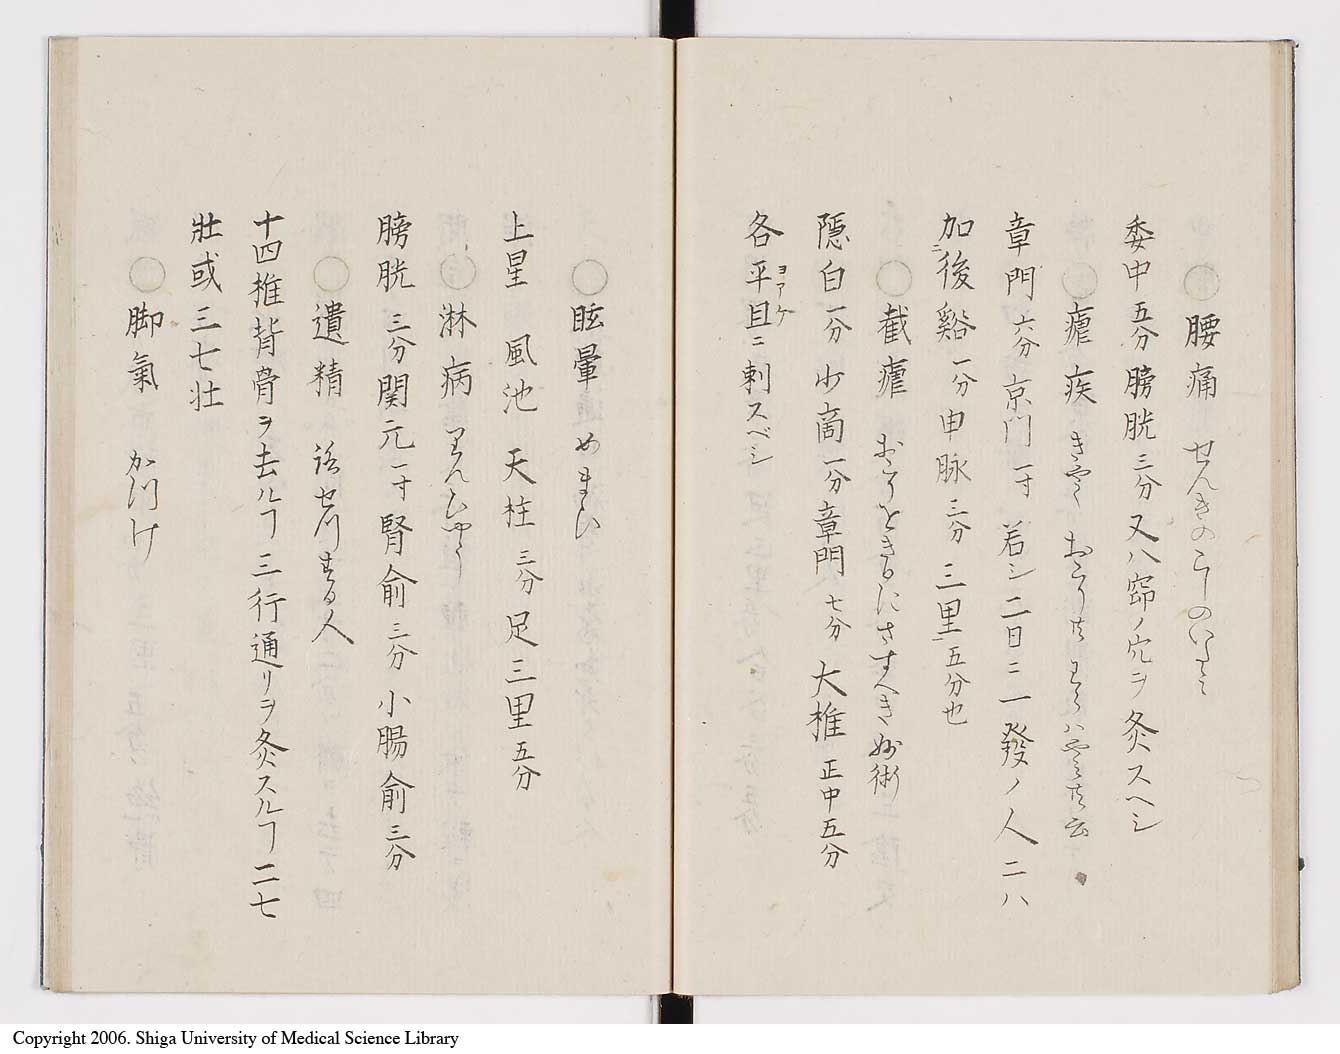 〇腰痛 せんきのこしのいたミ
委中五分膀胱三分又ハ窌ノ穴ヲ灸スヘシ
〇瘧疾 きやく おこり共わらハやミ共云
章門六分京門一寸若シ二日ニ一發ノ人ニハ
加ニ後谿一分申脉三分三里五分也
〇截瘧 おこりをきるにさすへき妙術
隠白一分少商一分章門七分大椎正中五分
各平旦ヨアケニ刺スベシ
〇眩暈 めまひ
上星 風池 天柱三分足三里五分
〇淋病 りんひやう
膀胱三分関元一寸腎俞三分小腸俞三分
〇遺精 せつする人
十四椎背骨ヲ去ルヿ三行通リヲ灸スルヿ二七
壯或三七壮
〇脚氣 かつけ
Copyright 2006. Shiga University of Medical Science Library